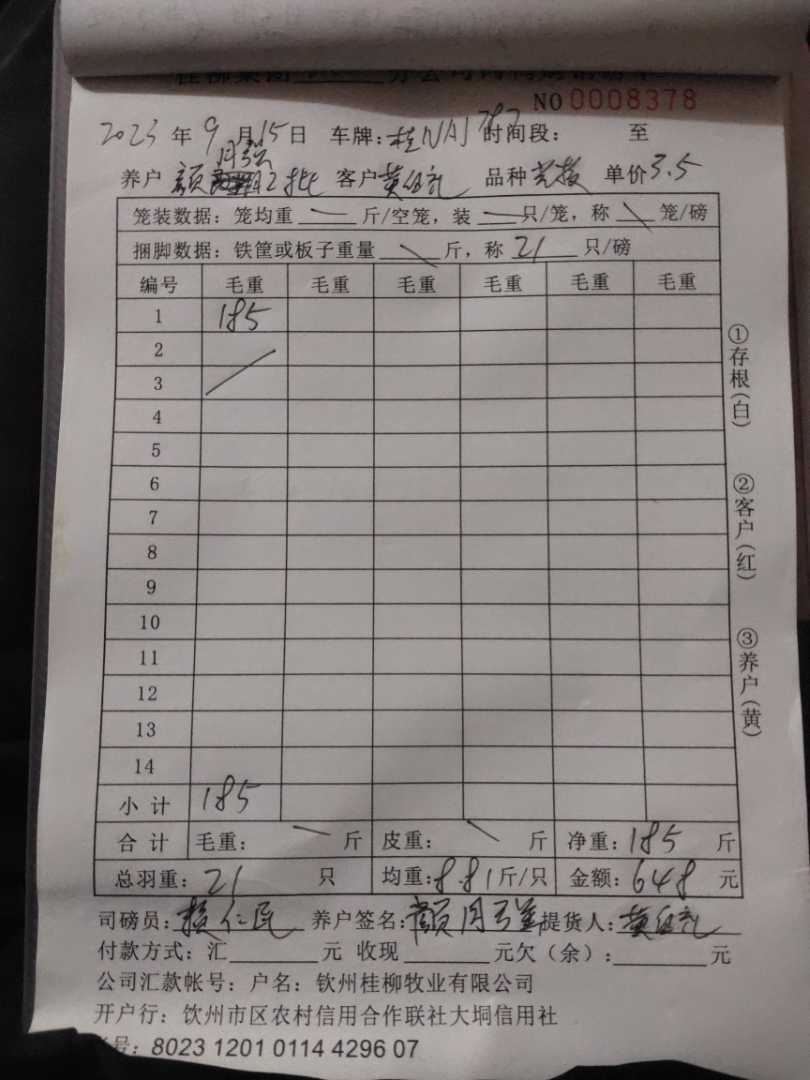 NO 0008378
2023 年 9 月 15 日 车牌: 桂NAJ797 时间段: 至
养户 颜月强 2批 客户 黄伍礼 品种 单价 3.5
笼装数据: 笼均重 斤/空笼, 装 只/笼, 称 笼/磅
捆脚数据: 铁筐或板子重量 斤, 称 21 只/磅
编号 毛重 毛重 毛重 毛重 毛重 毛重
1 185
2
3
4
5
6
7
8
9
10
11
12
13
14
小 计 185
合 计 毛重: 斤 皮重: 斤 净重: 185 斤
总羽重: 21 只 均重: 8.81 斤/只 金额: 648 元
司磅员: 仁民 养户签名: 颜月强 提货人: 黄伍礼
付款方式: 汇 元 收现 元欠 (余): 元
公司汇款帐号: 户名: 钦州桂柳牧业有限公司
开户行: 钦州市区农村信用合作联社大垌信用社
号: 8023 1201 0114 4296 07
①存根(白)
②客户(红)
③养户(黄)